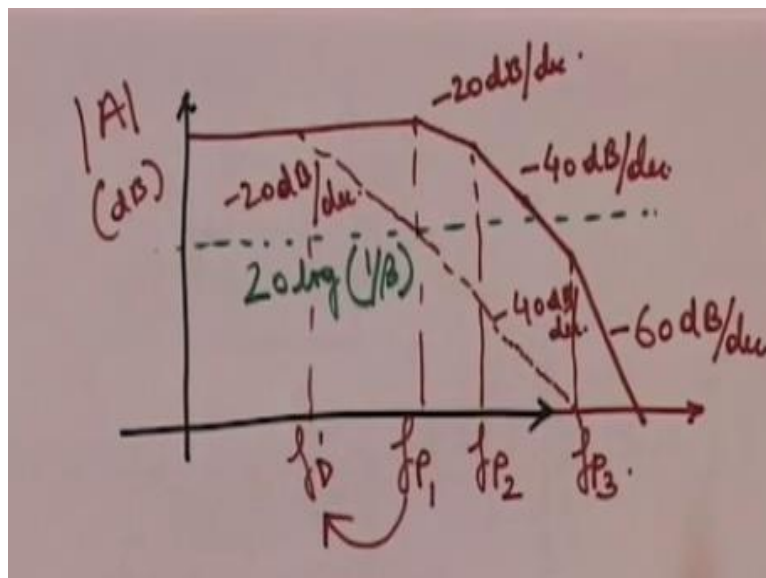 |A|
(dB)
-20dB/dec.
-40dB/dec.
-20dB/dec.
20log(1/β)
-40dB/dec.
-60dB/dec
f'D
fP1
fP2
fP3.